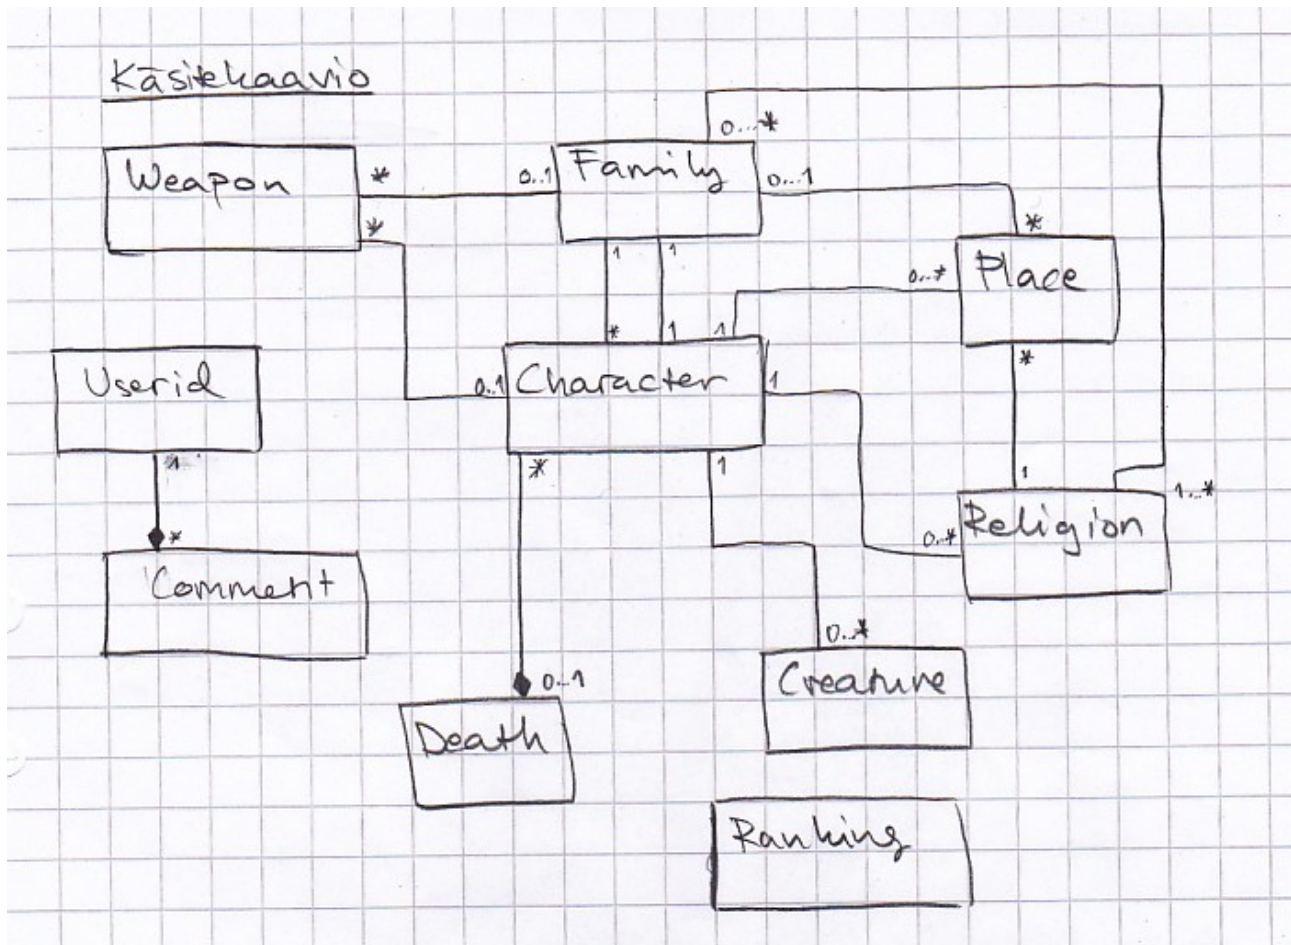 Käsitekaavio
0...*
Weapon
*
0..1
Family
0...1
*
*
1
1
0..*
Place
*
1
1
*
Userid
0..1
Character
1
1
*
1
1
1...*
*
0..*
Religion
Comment
0..*
Creature
0..1
Death
Ranking